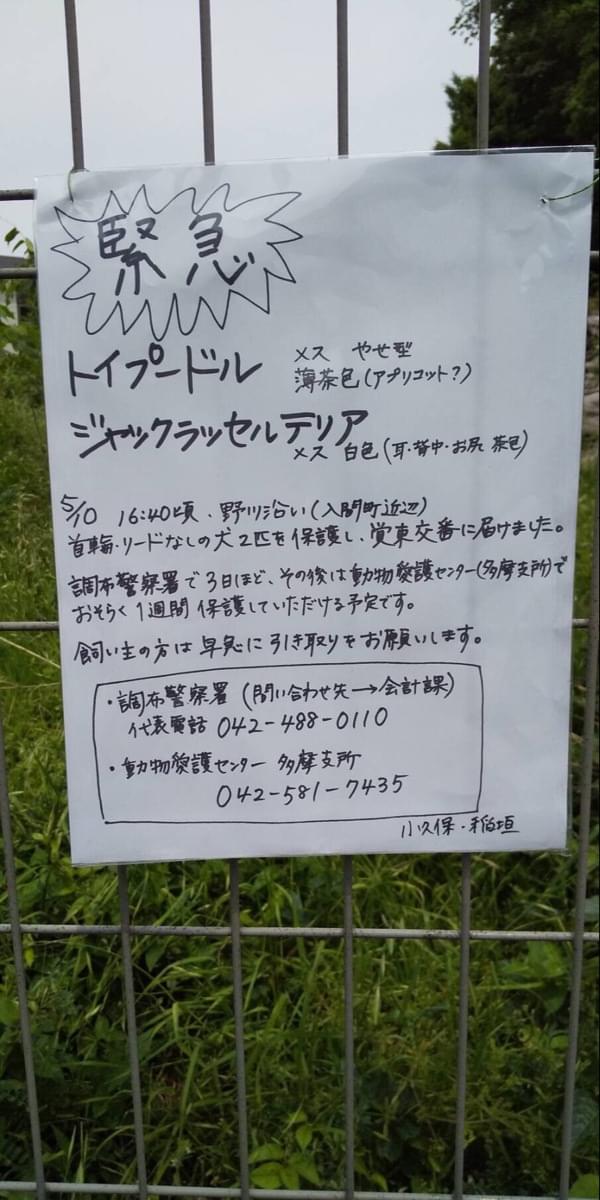 緊急
トイプードル メス やせ型
薄茶色(アプリコット?)
ジャックラッセルテリア
メス 白色(耳・背中・お尻 茶色)
5/10 16:40頃、野川沿い(入間町近辺)
首輪・リードなしの犬2匹を保護し、覚東交番に届けました。
調布警察署で3日ほど、その後は動物愛護センター(多摩支所)で
おそらく1週間保護していただける予定です。
飼い主の方は早急に引き取りをお願いします。
・調布警察署(問い合わせ先→会計課)
代表電話 042-488-0110
・動物愛護センター 多摩支所
042-581-7435
小久保・稲垣